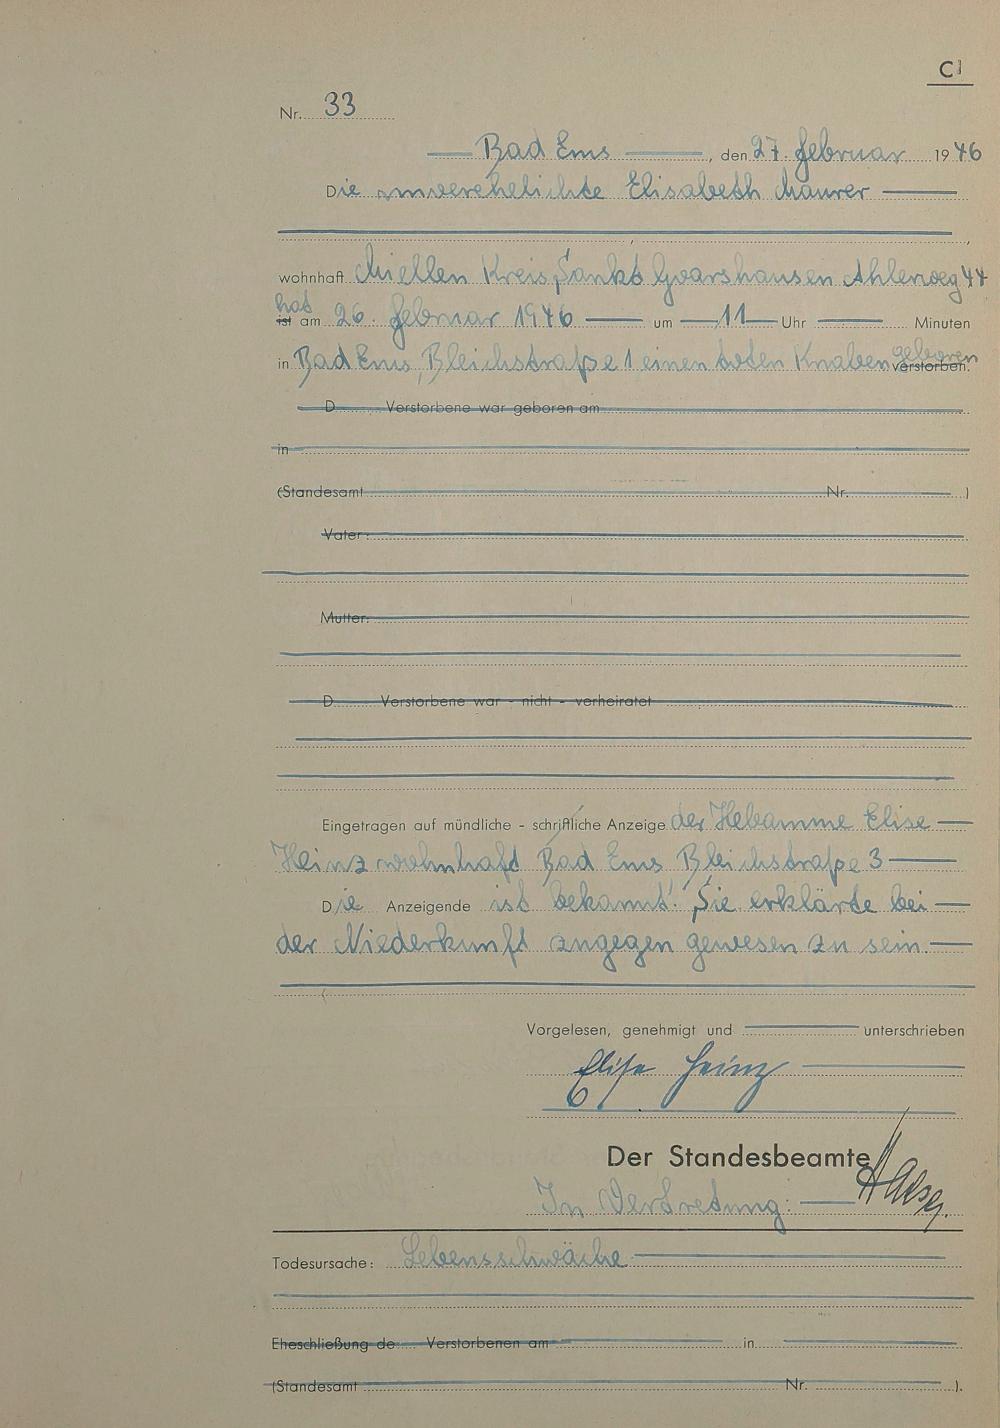 C
Nr. 33
Bad Ems, den 27. Februar 1946
Die unverehelichte Elisabeth Maurer
wohnhaft Miellen Kreis Sankt Goarshausen Ahlerweg 44
hat
ist am 26. Februar 1946 um 11 Uhr Minuten
geboren
in Bad Ems, Bleichstraße 1 einen toten Knaben verstorben.
D Verstorbene war geboren am
in
(Standesamt Nr. )
Vater:
Mutter:
D Verstorbene war - nicht - verheiratet
Eingetragen auf mündliche - schriftliche Anzeige der Hebamme Elise
Heinz wohnhaft Bad Ems Bleichstraße 3
Die Anzeigende ist bekannt. Sie erklärte bei
der Niederkunft zugegen gewesen zu sein.
Vorgelesen, genehmigt und unterschrieben
Elise Heinz
Der Standesbeamte
In Vertretung:
Todesursache: Lebensschwäche
Eheschließung de Verstorbenen am in
(Standesamt Nr. ).